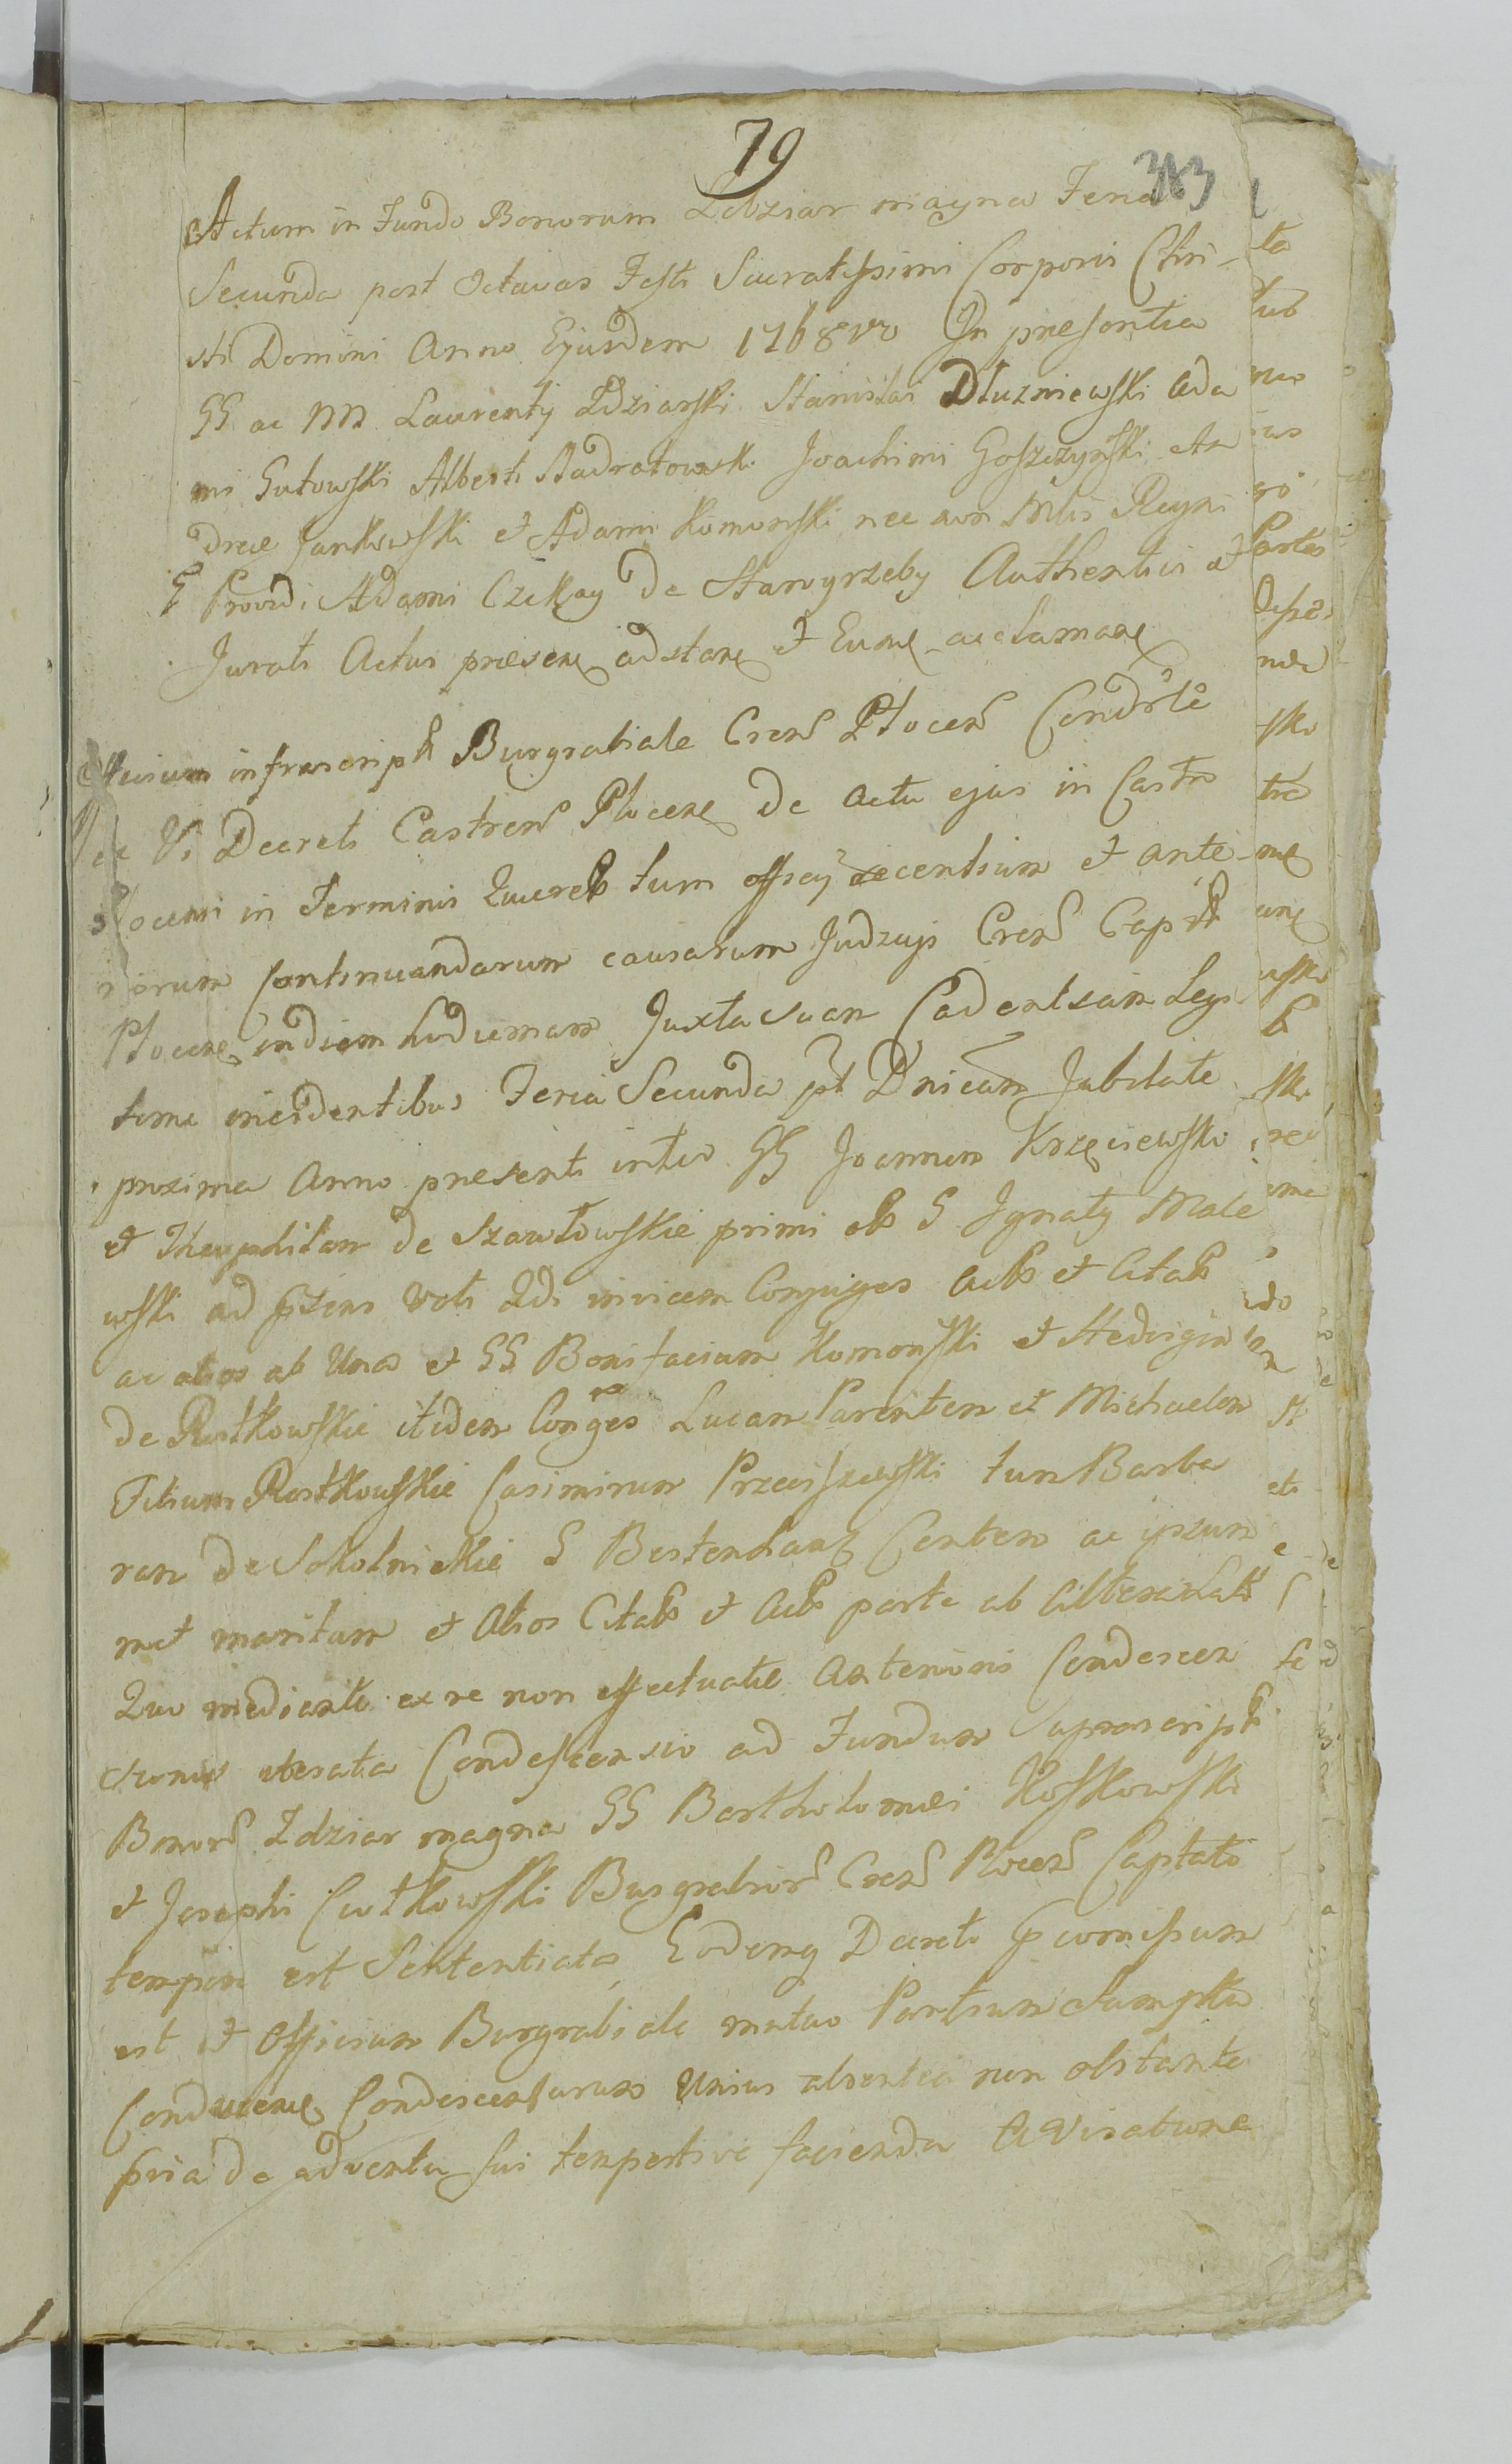 79
383
Actum in Fundo Bonorum Zdziar magna Feria
Secunda post Octavas Festi Sacratissimi Corporis Chri-
sti Domini Anno Ejusdem 1768vo In presentia
GG ac MM Laurentij Zdziarski Stanislai Dłuzniewski Ada
mi Gutowski Alberti Nadratowski Joachimi Goszczyński An
dreae Jankowski et Adami Komoński nec non Mlis Regni
G Providi Adami Czekay de Starogrzeby Authentici et
Jurati Actui presen adstan et Eum acclaman
Officium infrascript Burgrabiale Cren Plocen Condrle
Vi Decreti Castren Plocen de actu ejus in Castro
Plocensi in Terminis Querel tum officij recentium et ante
riorum continuandarum causarum Judicijs Cren Cap
Plocen in diem hodiernam Juxta suam Cadentiam Legi
time incidentibus Feria Secunda pt Dnicam Jubilate
proxima Anno presenti inter GG Joannem Krzęciewski
et Theophilam de Szawłowskie primi olo G Ignatij Male
wski ad psens Voti 2di invicem Conjuges Act et Citat
ac alios ab Una et GG Bonifacium Komoński et Hedvigim
de Rostkowskie itidem Conges Lucam Parentem et Michaelem
Filium Rostkowskie Casimirum Przeciszewski tum Barba
ram de Sokolnickie G Bestenhanz Conten ac ipsum
met maritum et Alios Citat et Act parte ab Altera
Quo mediante ex re non effectuatae Anterioris Condescen
sionis iterata Condescensio ad Fundum Suprascript
Bonor Zdziar magna GG Bartholomei Koskowski
et Josephi Ciotkowski Burgrabior Cren Plocen Captato
tempore est Sententiata Eodemq Decreto comissum
est et Officium Burgrabiale mutuo Partium Sumptu
Conducen Condescensurum Unius absentia non obstante
pvia de adventu sui tempestive facienda Avisatione